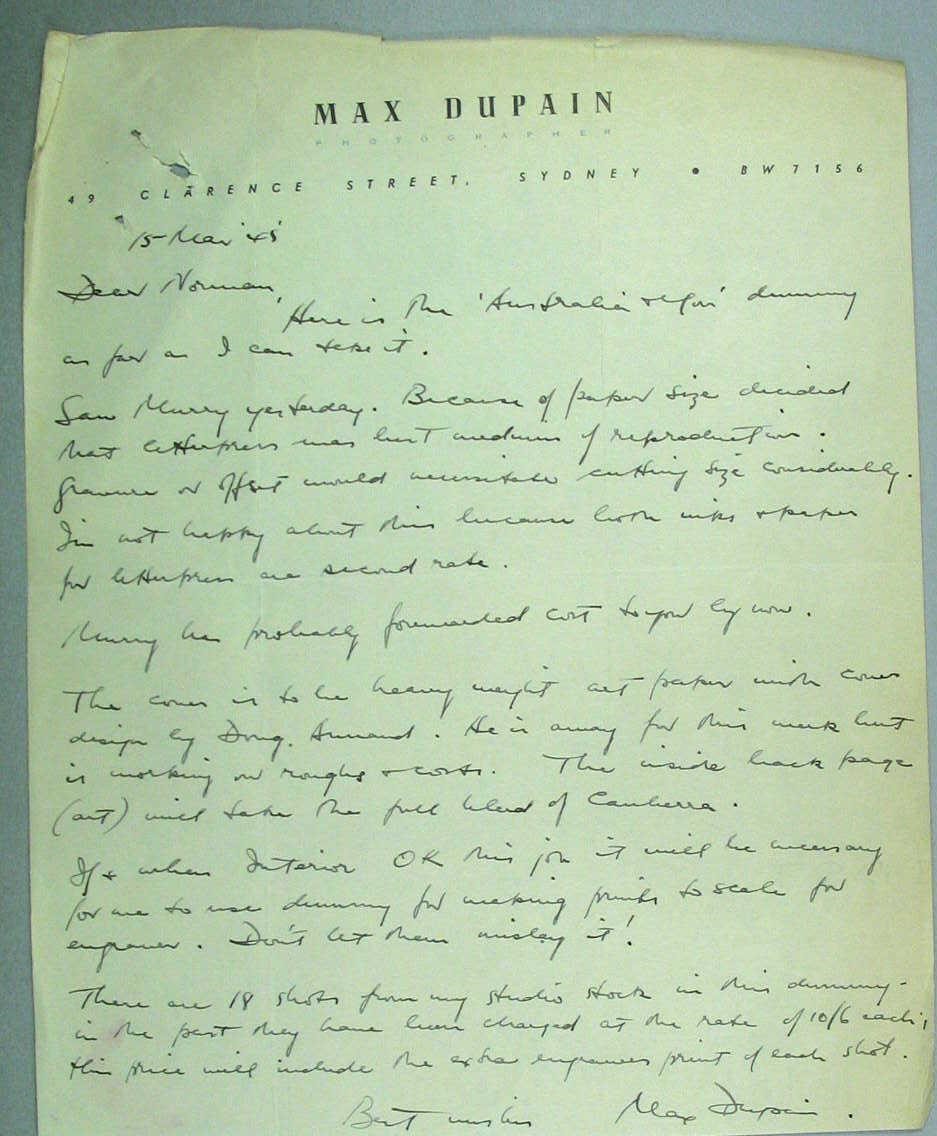 MAX DUPAIN
PHOTOGRAPHER
49 CLARENCE STREET, SYDNEY • BW7156
15 Mar '45
Dear Norman,
Here is the 'Australia & You' dummy
as far as I can take it.
Saw Murry yesterday. Because of paper size decided
that letterpress was best medium of reproduction.
Gravure or offset would necessitate cutting size considerably.
I'm not happy about this because both inks & paper
for letterpress are second rate.
Murry has probably forwarded cost to you by now.
The cover is to be heavy weight art paper with cover
design by Doug. Annand. He is away for this week but
is working on roughs & costs. The inside back page
(art) will take the full bleed of Canberra.
If & when Interior OK this job it will be necessary
for me to use dummy for making prints to scale for
engraver. Don't let them mislay it!
There are 18 shots from my studio stock in this dummy -
in the past they have been charged at the rate of 10/6 each;
this price will include the extra engravers print of each shot.
Best wishes Max Dupain.